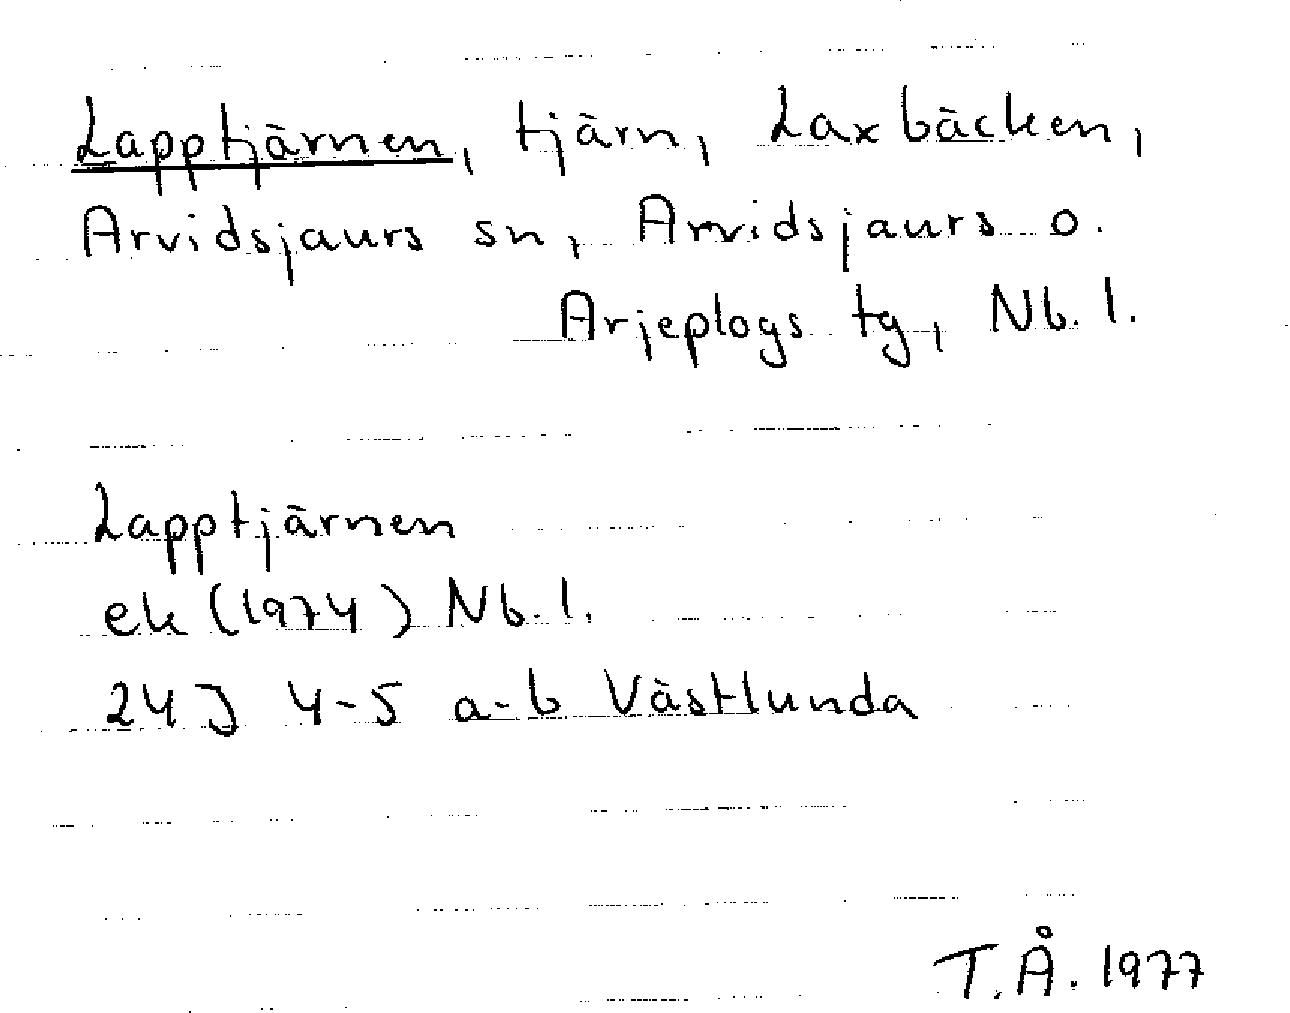 Lapptjärnen, tjärn, Laxbäcken,
Arvidsjaurs sn, Arvidsjaurs o.
Arjeplogs tg, Nb. l.
Lapptjärnen
ek (1974) Nb. l.
24J 4-5 a-b Västlunda
T.Å. 1977